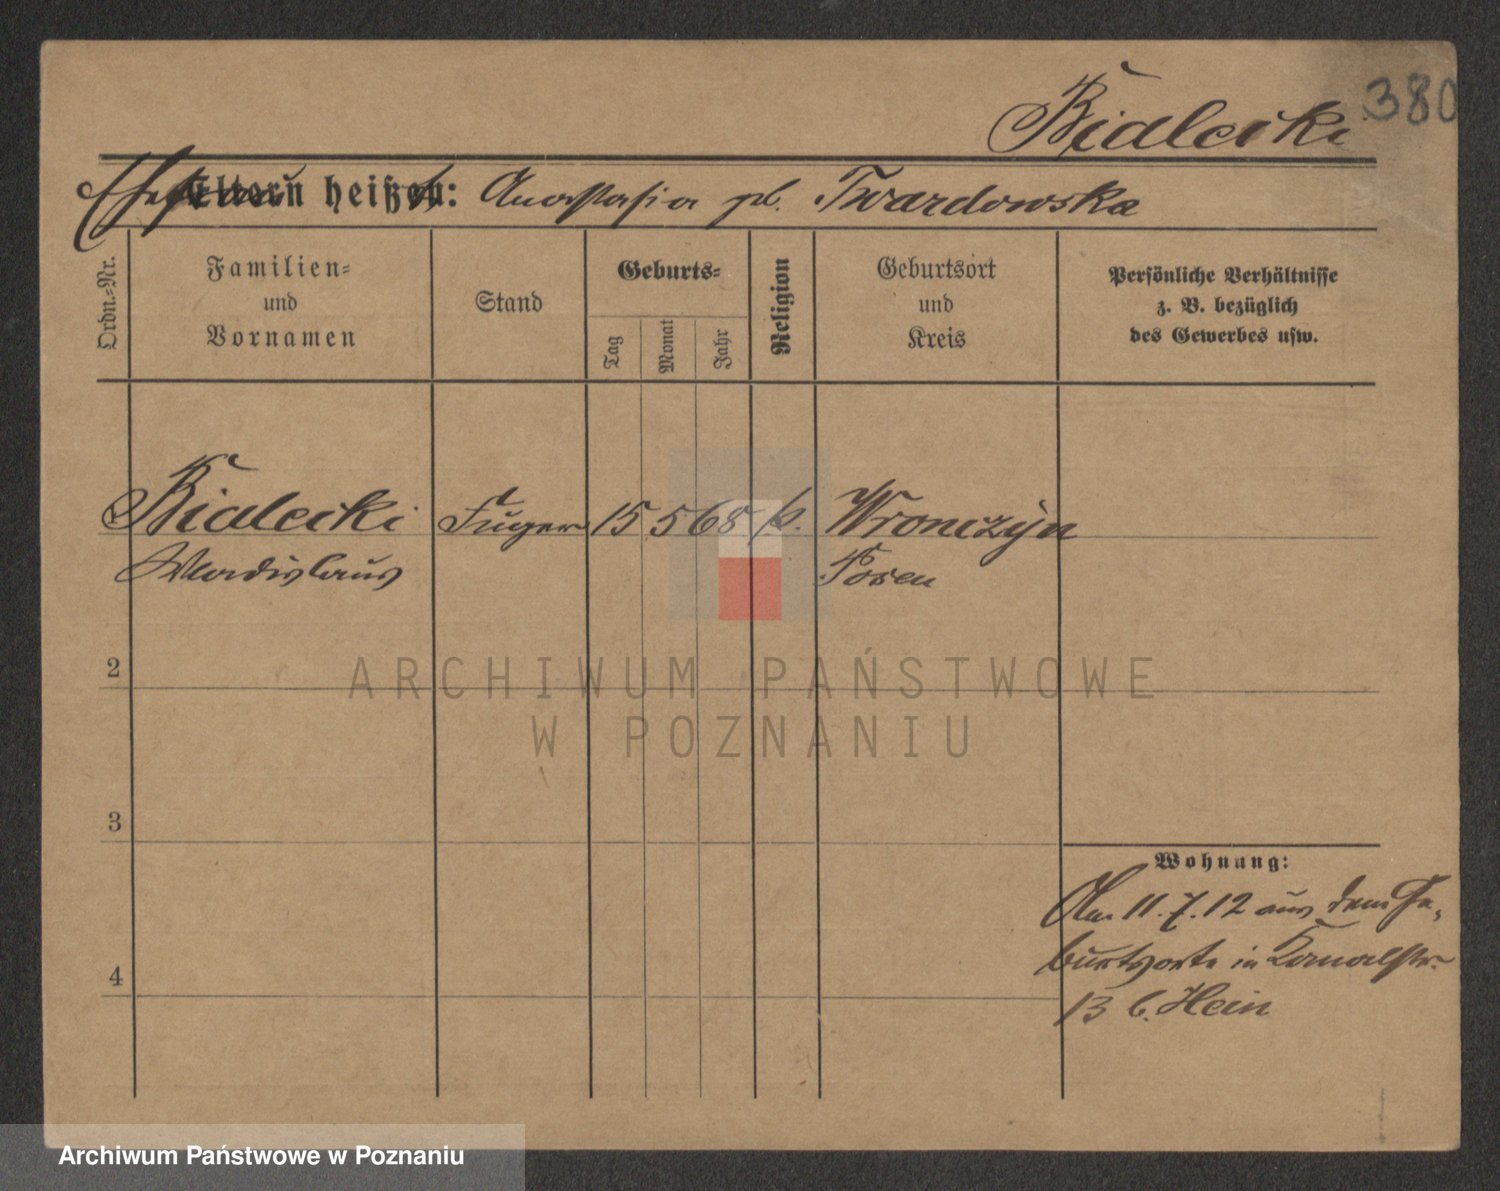 Bialecki 380
Ehefrau h. Eltern heißen: Anastasia gb. Twardowska
Ordn.-Nr.
Familien-
und
Vornamen
Stand
Geburts-
Tag
Monat
Jahr
Religion
Geburtsort
und
Kreis
Persönliche Verhältnisse
z. B. bezüglich
des Gewerbes usw.
Bialecki 15 5 68 k. Wronczyn
Wladislaus Posen
2
3
4
Wohnung:
Am 11.7.12 aus dem Ge-
burtsorte in Kanalstr.
13 b. Hein
ARCHIWUM PAŃSTWOWE
W POZNANIU
Archiwum Państwowe w Poznaniu